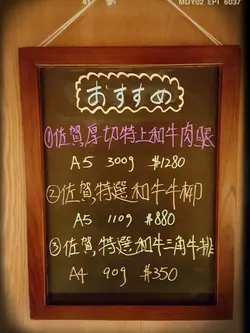 MUY02 EPT 6037
おすすめ
①佐賀厚切特上和牛肉眼
A5 300g $1280
②佐賀,特選和牛牛柳
A5 110g $880
③佐賀,特選和牛三角牛排
A4 90g $350